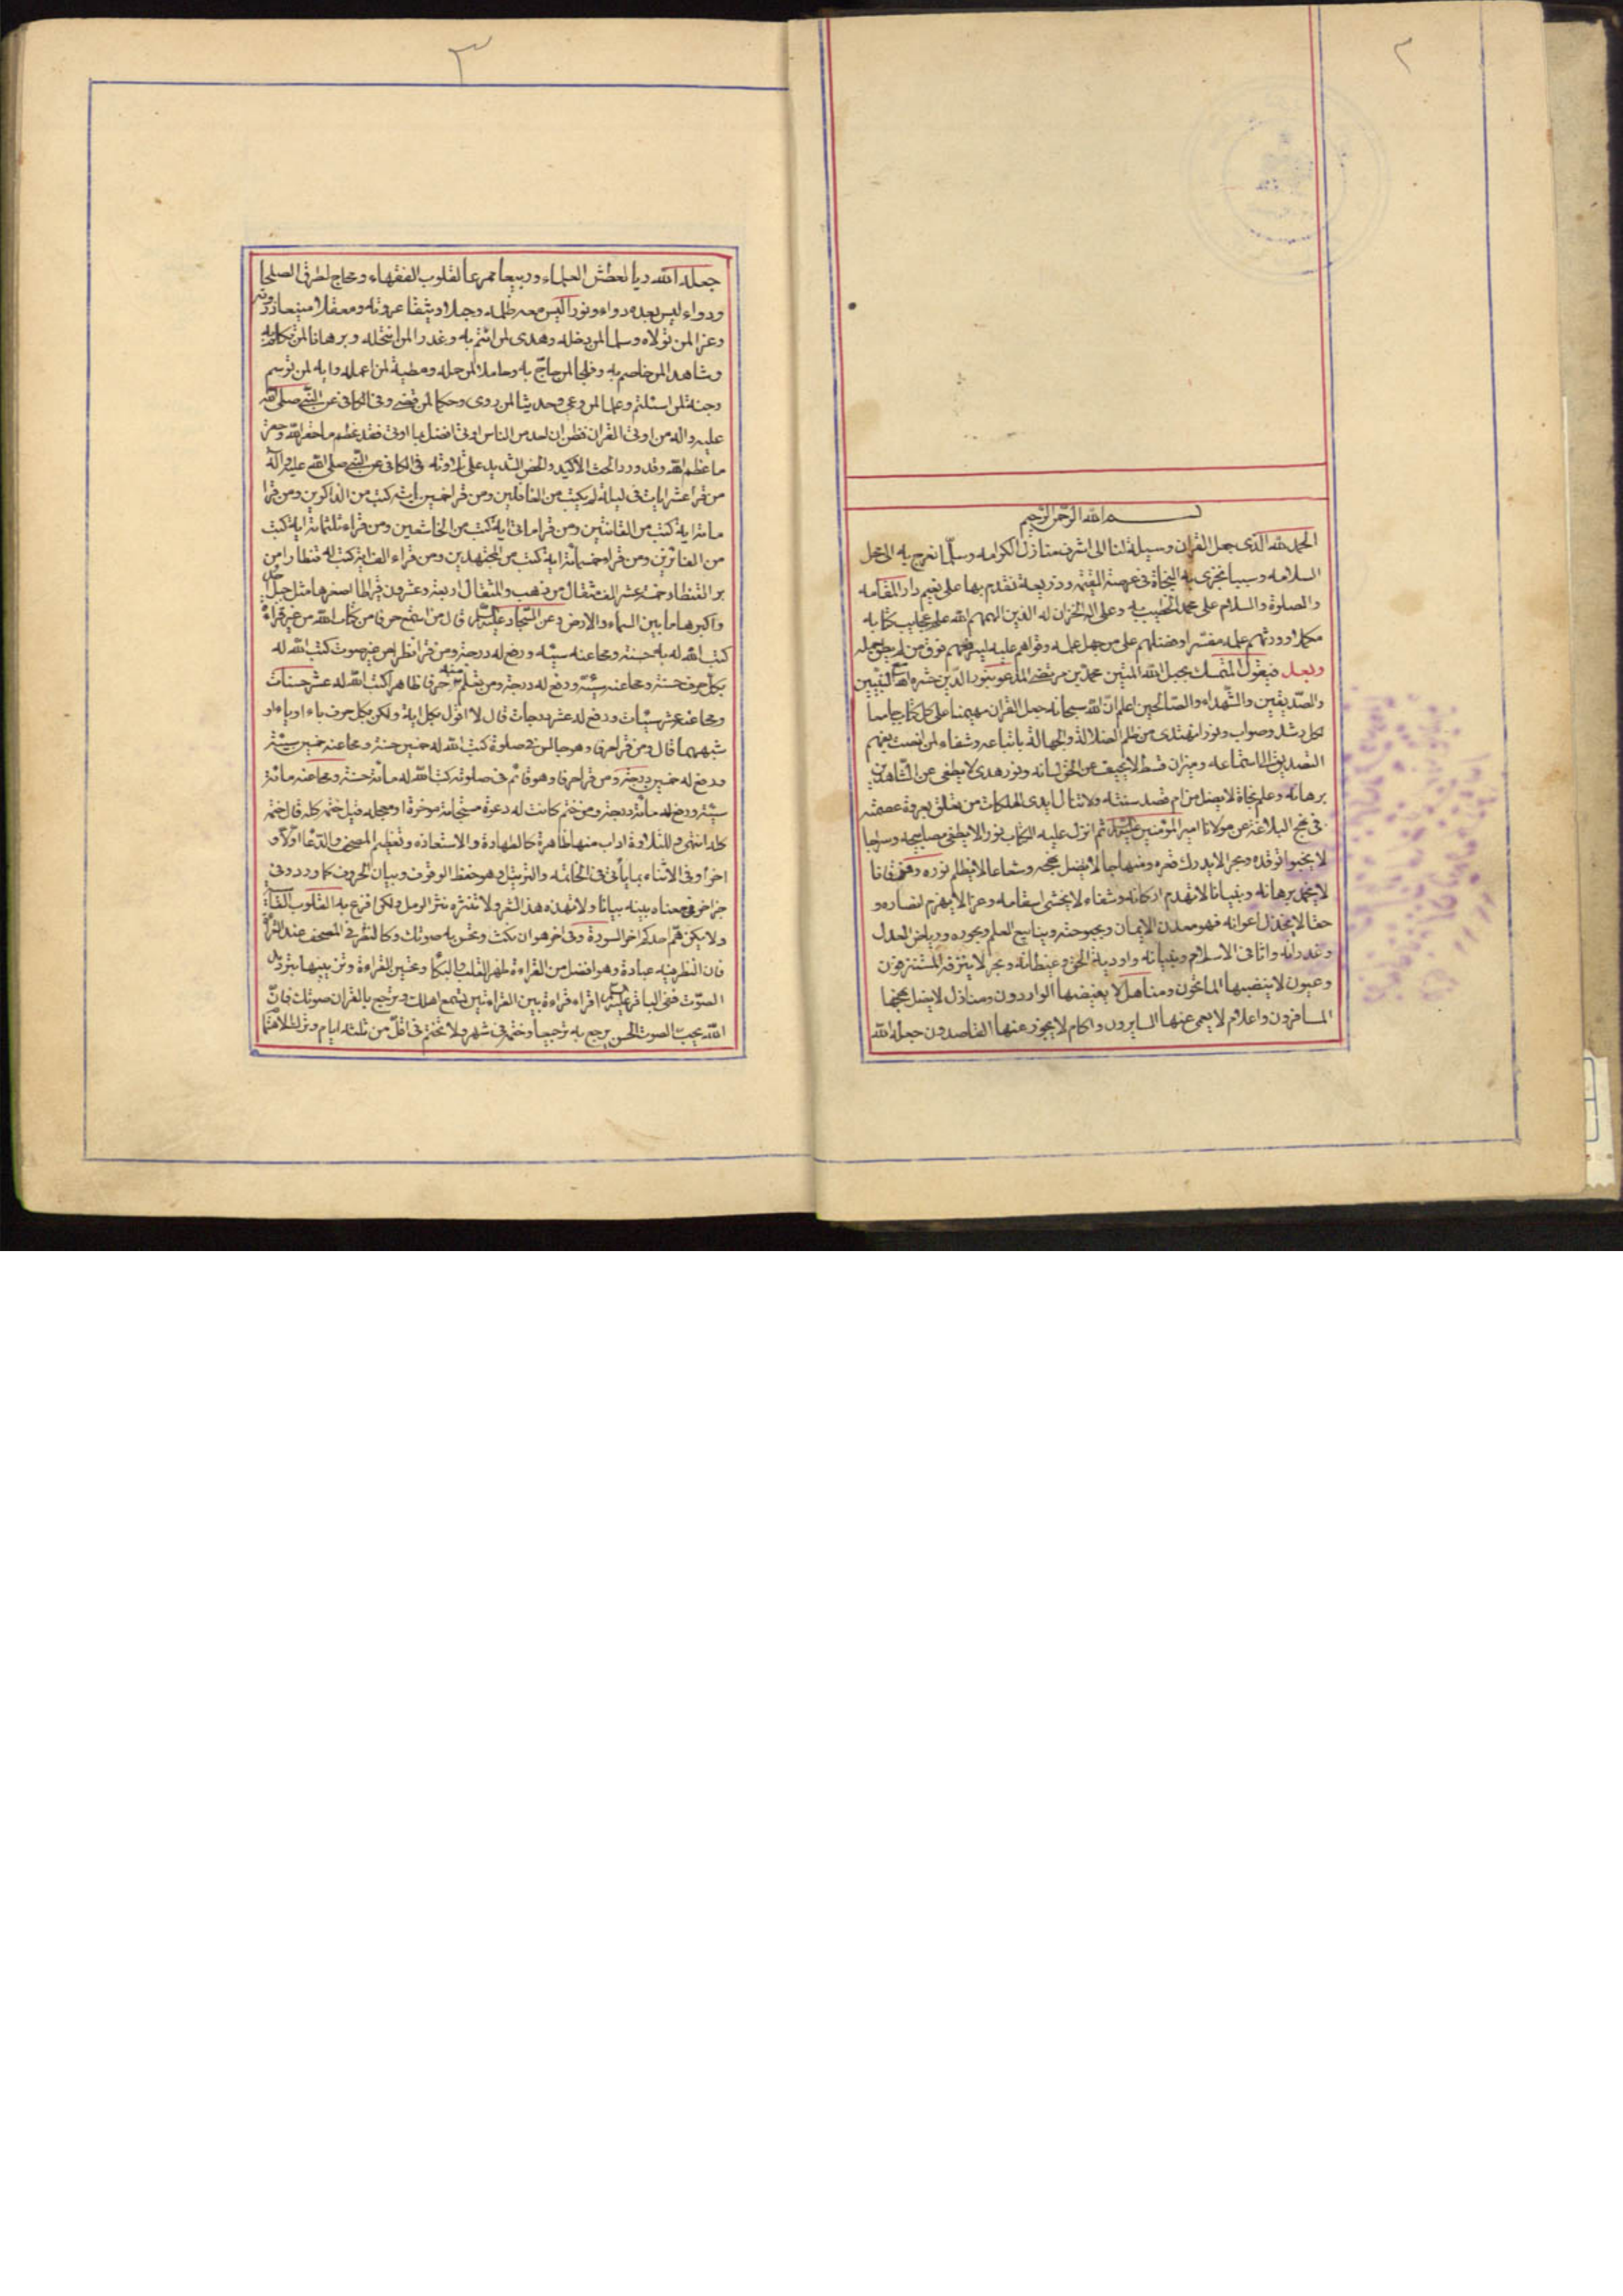 ٢
بسم الله الرحمن الرحيم
الحمد لله الذى جعل القران وسيلة لنا الى اشرف منازل الكرامه وسلما نعرج به الى محل
السلامه وسببا نجزى به النجاة فى عرصة القيمه وذريعة نقدم بها على نعيم دار المقامه
والصلوة والسلام على محمد الخطيب به وعلى اله الخزان له الذين الهمهم الله علم عجايب كتابه
مكملا وورثهم علمه مفسرا وفضلهم على من جهل علمه وقواهم عليه ليرفعهم فوق من لم يطق حمله
وبعد فيقول المتمسك بحبل الله المتين محمد بن مرتضى المدعو بنور الدين حشره الله مع النبيين
والصديقين والشهداء والصالحين اعلم ان الله سبحانه جعل القران مهيمنا على كل كتاب جامعا
لكل رشد وصواب ونورا نهتدى من ظلم الضلالة والجهالة باتباعه وشفاء لمن انصت بفهم
التصديق الى استماعه وميزان قسط لا يحيف عن الحق لسانه ونور هدى لا يطفى عن الشاهدين
برهانه وعلم نجاة لا يضل من ام قصد سنته ولا تنال ايدى الهلكات من تعلق بعروة عصمته
فى نهج البلاغة عن مولانا امير المؤمنين عليه السلام ثم انزل عليه الكتاب نورا لا يطفى مصابيحه وسراجا
لا يخبو توقده وبحرا لا يدرك قعره ومنهاجا لا يضل نهجه وشعاعا لا يظلم نوره وفرقانا
لا يخمد برهانه وبنيانا لا تهدم اركانه وشفاء لا يخشى اسقامه وعزا لا يهزم انصاره و
حقا لا يخذل اعوانه فهو معدن الايمان وبحبوحته وينابيع العلم وبحوره ورياض العدل
وغدرانه واثافى الاسلام وبنيانه واودية الحق وغيطانه وبحر لا ينزفه المستنزفون
وعيون لا ينضبها الماتحون ومناهل لا يغيضها الواردون ومنازل لا يضل نهجها
المسافرون واعلام لا يعمى عنها السايرون واكام لا يجوز عنها القاصدون جعله الله
٣
جعله الله ريا لعطش العلماء وربيعا ممرعا لقلوب الفقهاء ومحاج لطرق الصلحا
ودواء ليس بعده دواء ونورا ليس معه ظلمه وحبلا وثيقا عروته ومعقلا منيعا ذروته
وعزا لمن تولاه وسلما لمن دخله وهدى لمن ائتم به وعذرا لمن انتحله وبرهانا لمن تكلم به
وشاهدا لمن خاصم به وفلجا لمن حاج به وحاملا لمن حمله ومطية لمن اعمله واية لمن توسم
وجنة لمن استلئم وعلما لمن وعى وحديثا لمن روى وحكما لمن قضى وفى الكافى عن النبى صلى الله
عليه واله من اوتى القران فظن ان احد من الناس اوتى افضل مما اوتى فقد عظم ما حقر الله وحقر
ما عظم الله وقد ورد الحث الاكيد والحض الشديد على تلاوته فى الكافى عن النبى صلى الله عليه واله
من قرا عشر ايات فى ليلة لم يكتب من الغافلين ومن قرا خمسين اية كتب من الذاكرين ومن قرا
مائة اية كتب من القانتين ومن قرا مائتى اية كتب من الخاشعين ومن قراء ثلثمائة اية كتب
من الفائزين ومن قرا خمسمائة اية كتب من المجتهدين ومن قراء الف اية كتب له قنطار من
بر القنطار خمسة عشر الف مثقال من ذهب والمثقال اربعة وعشرون قيراطا اصغرها مثل جبل احد
واكبرها ما بين السماء والارض وعن السجاد عليه السلام قال من استمع حرفا من كتاب الله من غير قراءة
كتب الله له به حسنة ومحا عنه سيئه ورفع له درجة ومن قرا نظرا من غير صوت كتب الله له
بكل حرف حسنة ومحا عنه سيئة ورفع له درجة ومن تعلم منه حرفا ظاهرا كتب الله له عشر حسنات
ومحا عنه عشر سيئات ورفع له عشر درجات قال لا اقول بكل اية ولكن بكل حرف باء او ياء او
شبههما قال ومن قرا حرفا وهو جالس فى صلوة كتب الله له خمسين حسنة ومحا عنه خمسين سيئة
ورفع له خمسين درجة ومن قرا حرفا وهو قائم فى صلوته كتب الله له مائة حسنة ومحا عنه مائة
سيئة ورفع له مائة درجة ومن ختمه كانت له دعوة مستجابة مؤخرة او معجله قيل ختمه كله قال ختمه
كله انتهى وللتلاوة اداب منها ظاهرة كالطهارة والاستعاذه وتعظيم المصحف والدعا اولا و
اخرا وفى الاثناء بما ياتى فى الخاتمه والترتيل وهو حفظ الوقوف وبيان الحروف كما ورد وفى
خبر اخر فى معناه بينه بيانا ولا تهذه هذ الشعر ولا تنثره نثر الرمل ولكن افزع به القلوب القاسية
ولا يكن هم احدكم اخر السورة وفى اخر هو ان تمكث وتحسن به صوتك وكالنظر فى المصحف عند القراءة
فان النظر فيه عبادة وهو افضل من القراءة ظهر القلب والبكا وتحسين القراءة وتزيينها بترديد
الصوت فعن الباقر عليه السلام اقراء قراءة بين القراءتين تسمع اهلك ورجع بالقران صوتك فان
الله يحب الصوت الحسن يرجع به ترجيعا وختمه فى شهر ولا تختم فى اقل من ثلثه ايام وترك الاهتما